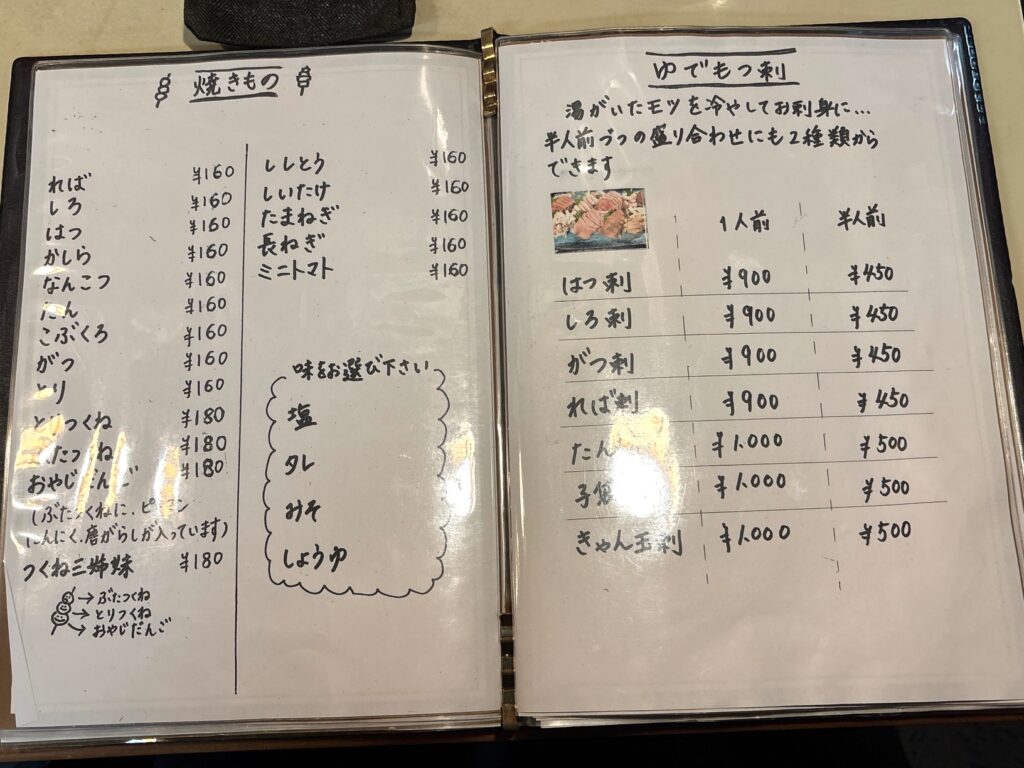 焼きもの
れば ¥160
しろ ¥160
はつ ¥160
かしら ¥160
なんこつ ¥160
たん ¥160
こぶくろ ¥160
がつ ¥160
とり ¥160
とりつくね ¥180
ぶたつくね ¥180
おやじだんご ¥180
(ぶたつくねに、ピーマン
にんにく、唐がらしが入っています)
つくね三姉妹 ¥180
→ぶたつくね
→とりつくね
→おやじだんご
ししとう ¥160
しいたけ ¥160
たまねぎ ¥160
長ねぎ ¥160
ミニトマト ¥160
味をお選び下さい
塩
タレ
みそ
しょうゆ
ゆでもつ刺
湯がいたモツを冷やしてお刺身に…
半人前づつの盛り合わせにも2種類から
できます
1人前 半人前
はつ刺 ¥900 ¥450
しろ刺 ¥900 ¥450
がつ刺 ¥900 ¥450
れば刺 ¥900 ¥450
たん ¥1.000 ¥500
子袋 ¥1.000 ¥500
きゃん玉刺 ¥1.000 ¥500